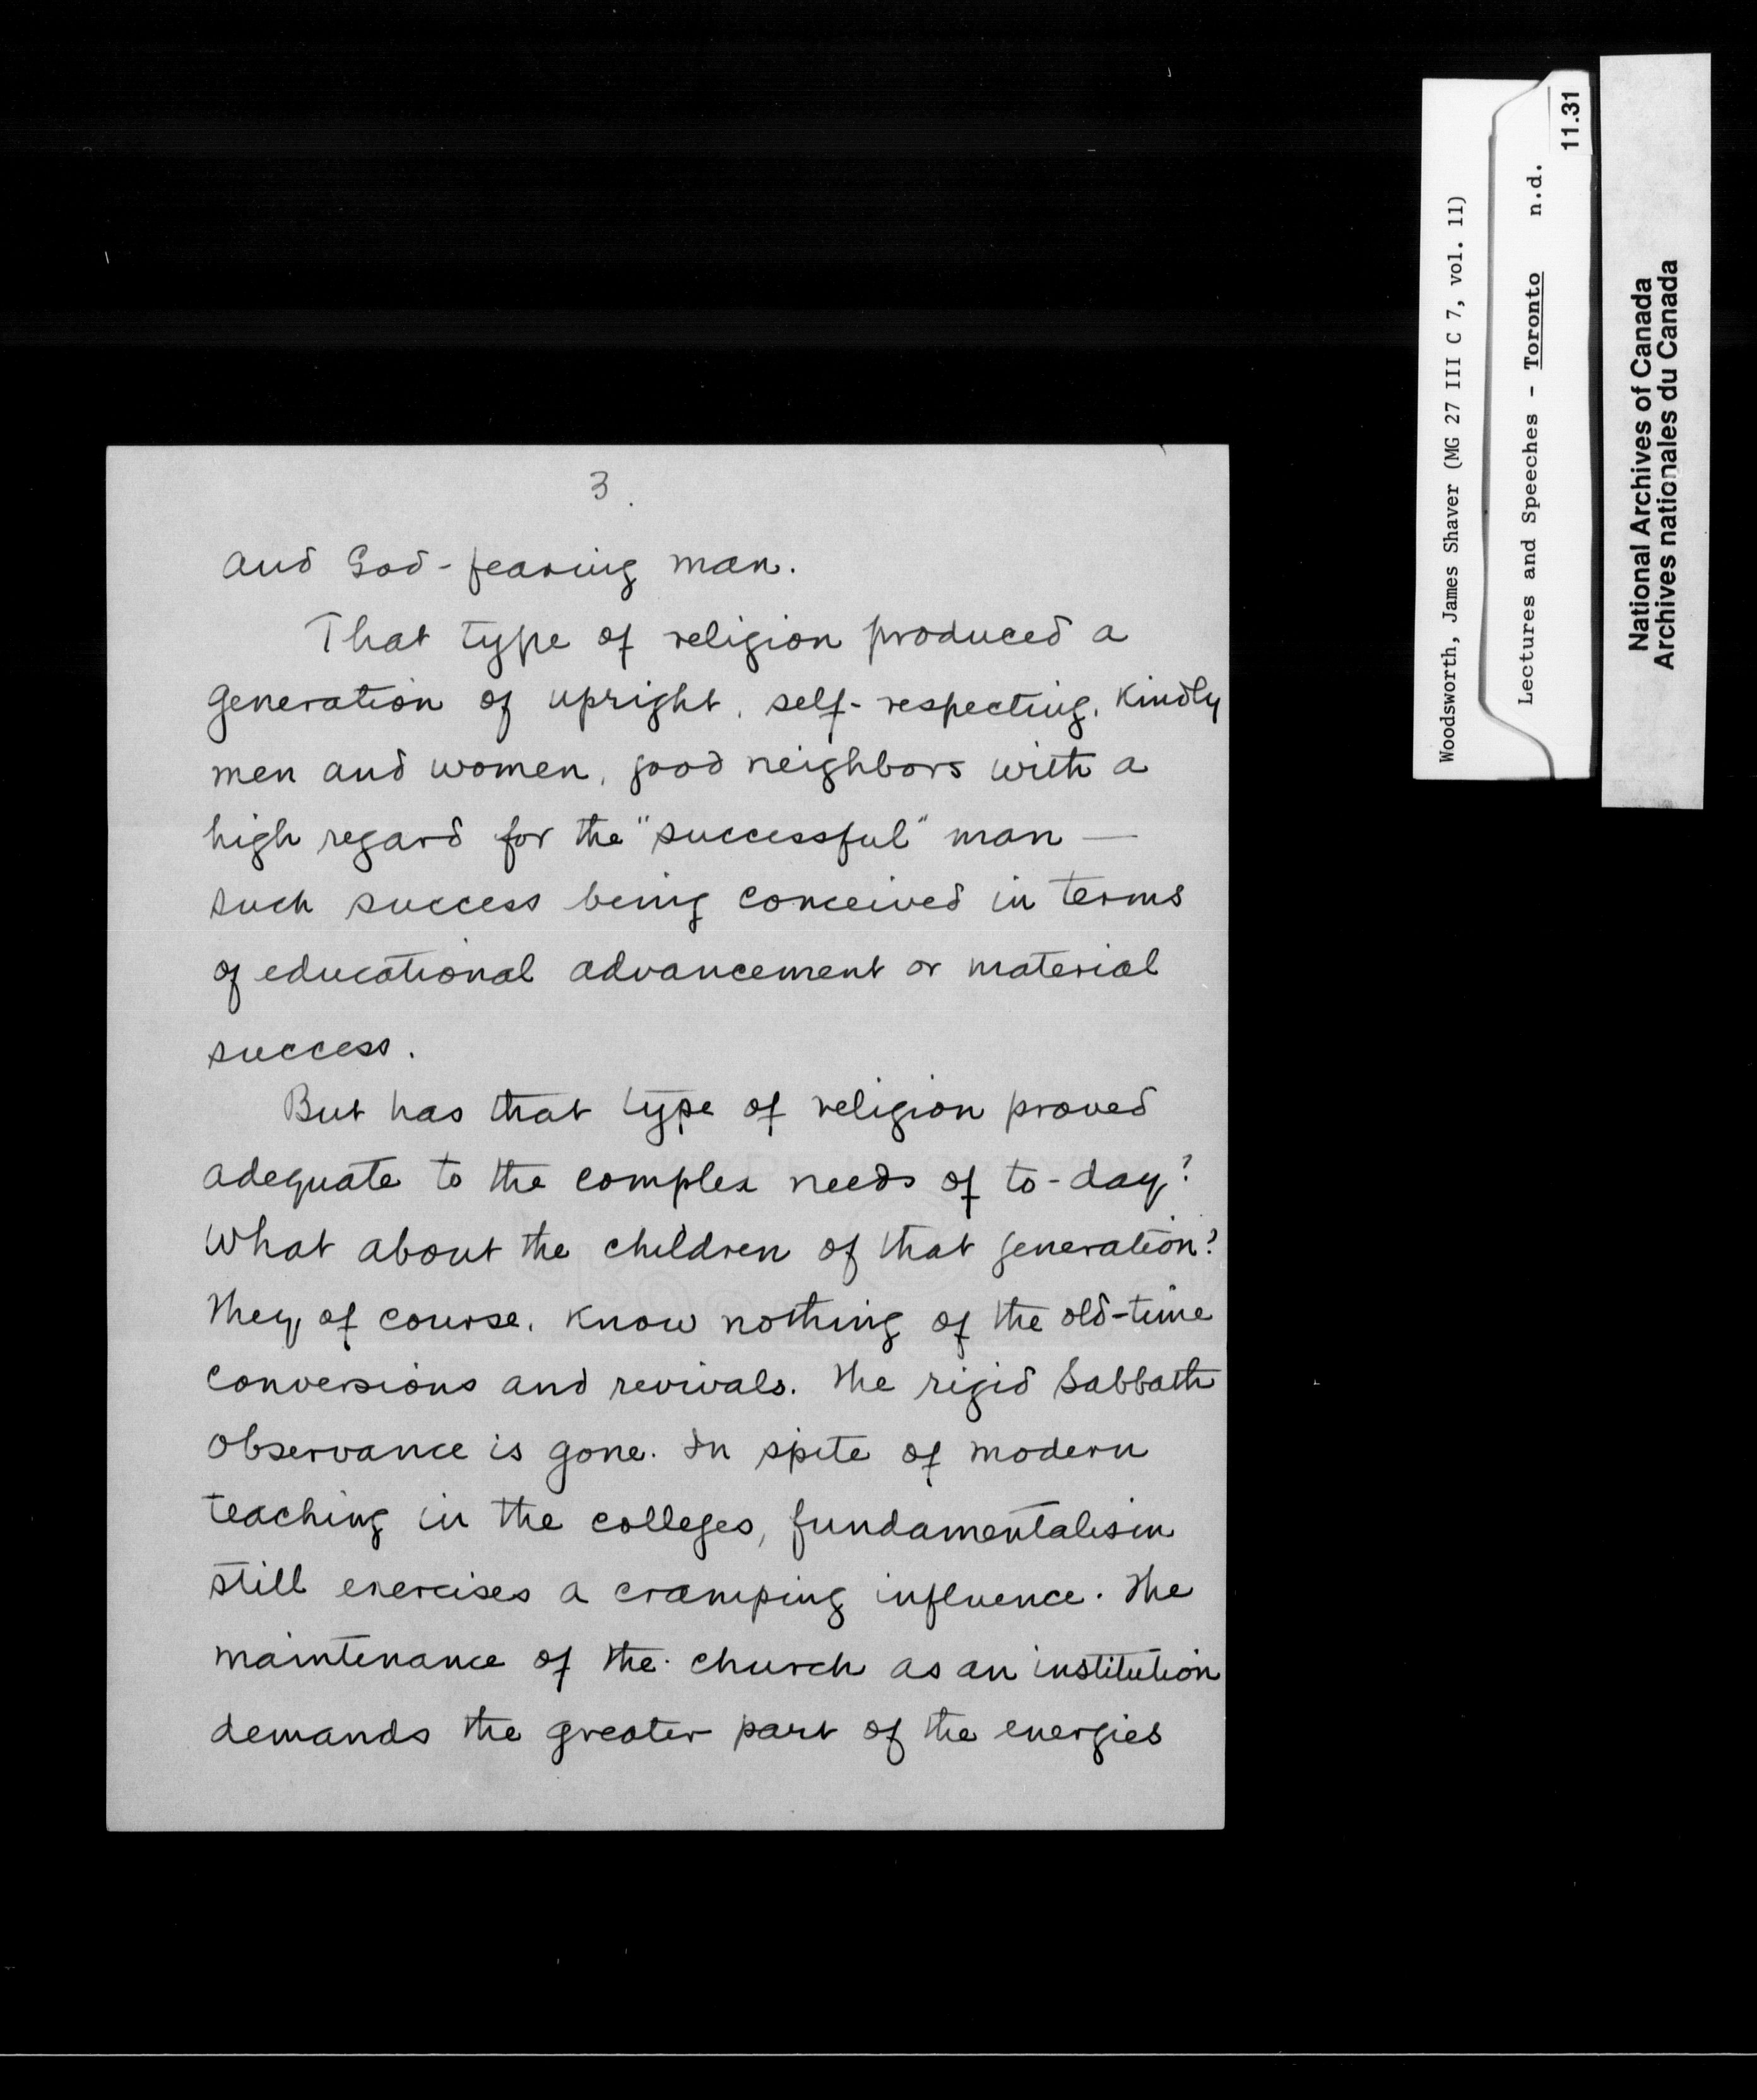 3.
and God-fearing man.
That type of religion produced a
generation of upright, self-respecting, kindly
men and women, good neighbors with a
high regard for the "successful" man —
such success being conceived in terms
of educational advancement or material
success.
But has that type of religion proved
adequate to the complex needs of to-day?
What about the children of that generation?
They, of course, know nothing of the old-time
conversions and revivals. The rigid Sabbath
observance is gone. In spite of modern
teaching in the colleges, fundamentalism
still exercises a cramping influence. The
maintenance of the church as an institution
demands the greater part of the energies
Woodsworth, James Shaver (MG 27 III C 7, vol. 11)
Lectures and Speeches - Toronto n.d.
11.31
National Archives of Canada
Archives nationales du Canada